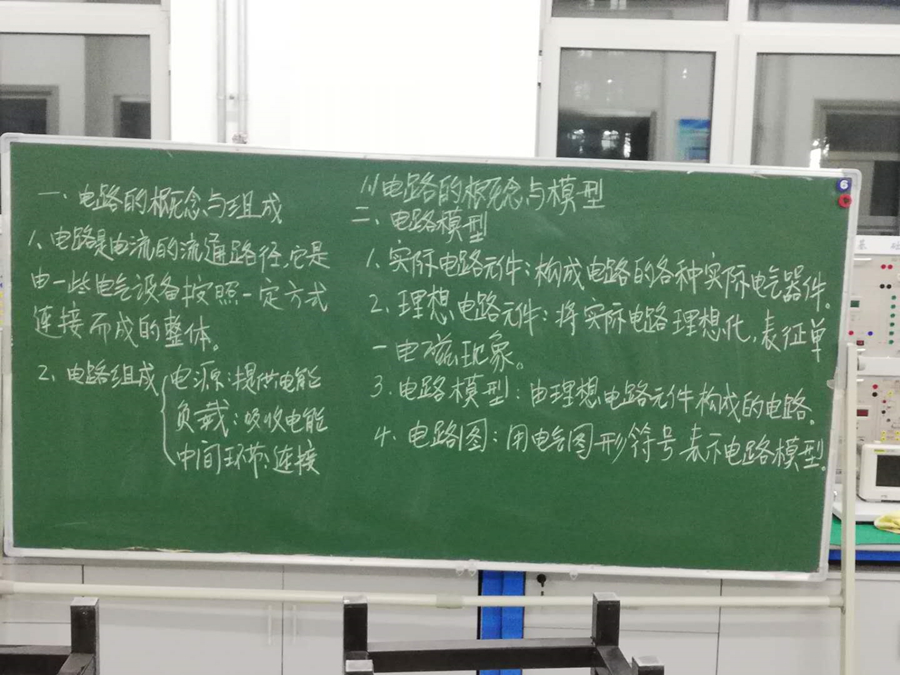 一、电路的概念与组成
1、电路是电流的流通路径,它是
由一些电气设备按照一定方式
连接而成的整体。
2、电路组成 电源:提供电能
负载:吸收电能
中间环节:连接
1.1 电路的概念与模型
二、电路模型
1、实际电路元件:构成电路的各种实际电气器件。
2、理想电路元件:将实际电路理想化,表征单
一电磁现象。
3、电路模型:由理想电路元件构成的电路。
4、电路图:用电气图形符号表示电路模型。
6
基